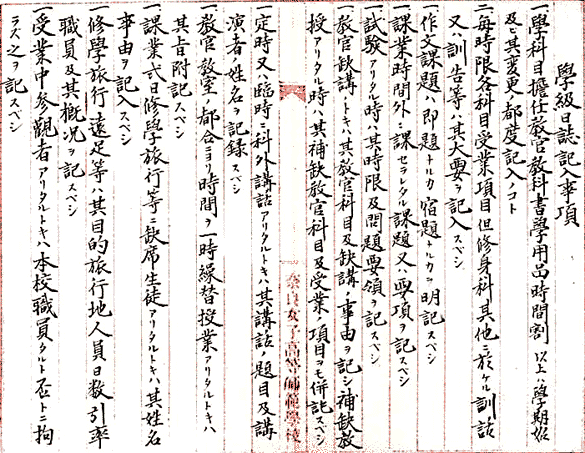 學級日誌記入事項
一學科目擔任教官教科書學用品時間割 以上ハ學期始
及ビ其變更ノ都度記入ノコト
二每時限各科目受業項目但修身科其他ニ於ケル訓話
又ハ訓告等ハ其大要ヲ記入スベシ
一作文課題ハ即題トルカ宿題トルカヲ明記スベシ
一課業時間外ニ課セラレタル課題又ハ要項ヲ記スベシ
一試驗アリタル時ハ其時限及問題要領ヲ記スベシ
一教官缺講ノトキハ其教官科目及缺講ノ事由ヲ記シ補缺教
授アリタル時ハ其補缺教官科目及受業ノ項目ヲモ併記スベシ
一定時又ハ臨時ニ科外講話アリタルトキハ其講話ノ題目及講
演者ノ姓名ヲ記錄スベシ
一教官教室ノ都合ニヨリ時間ヲ一時繰替授業アリタルトキハ
其旨附記スベシ
一課業式日修學旅行等ニ缺席生徒アリタルトキハ其姓名
事由ヲ記入スベシ
一修學旅行遠足等ハ其目的旅行地人員日數引率
職員及其概況ヲ記スベシ
一受業中參觀者アリタルトキハ本校職員タルト否トニ拘
ラズ之ヲ記スベシ
奈良女子高等師範學校